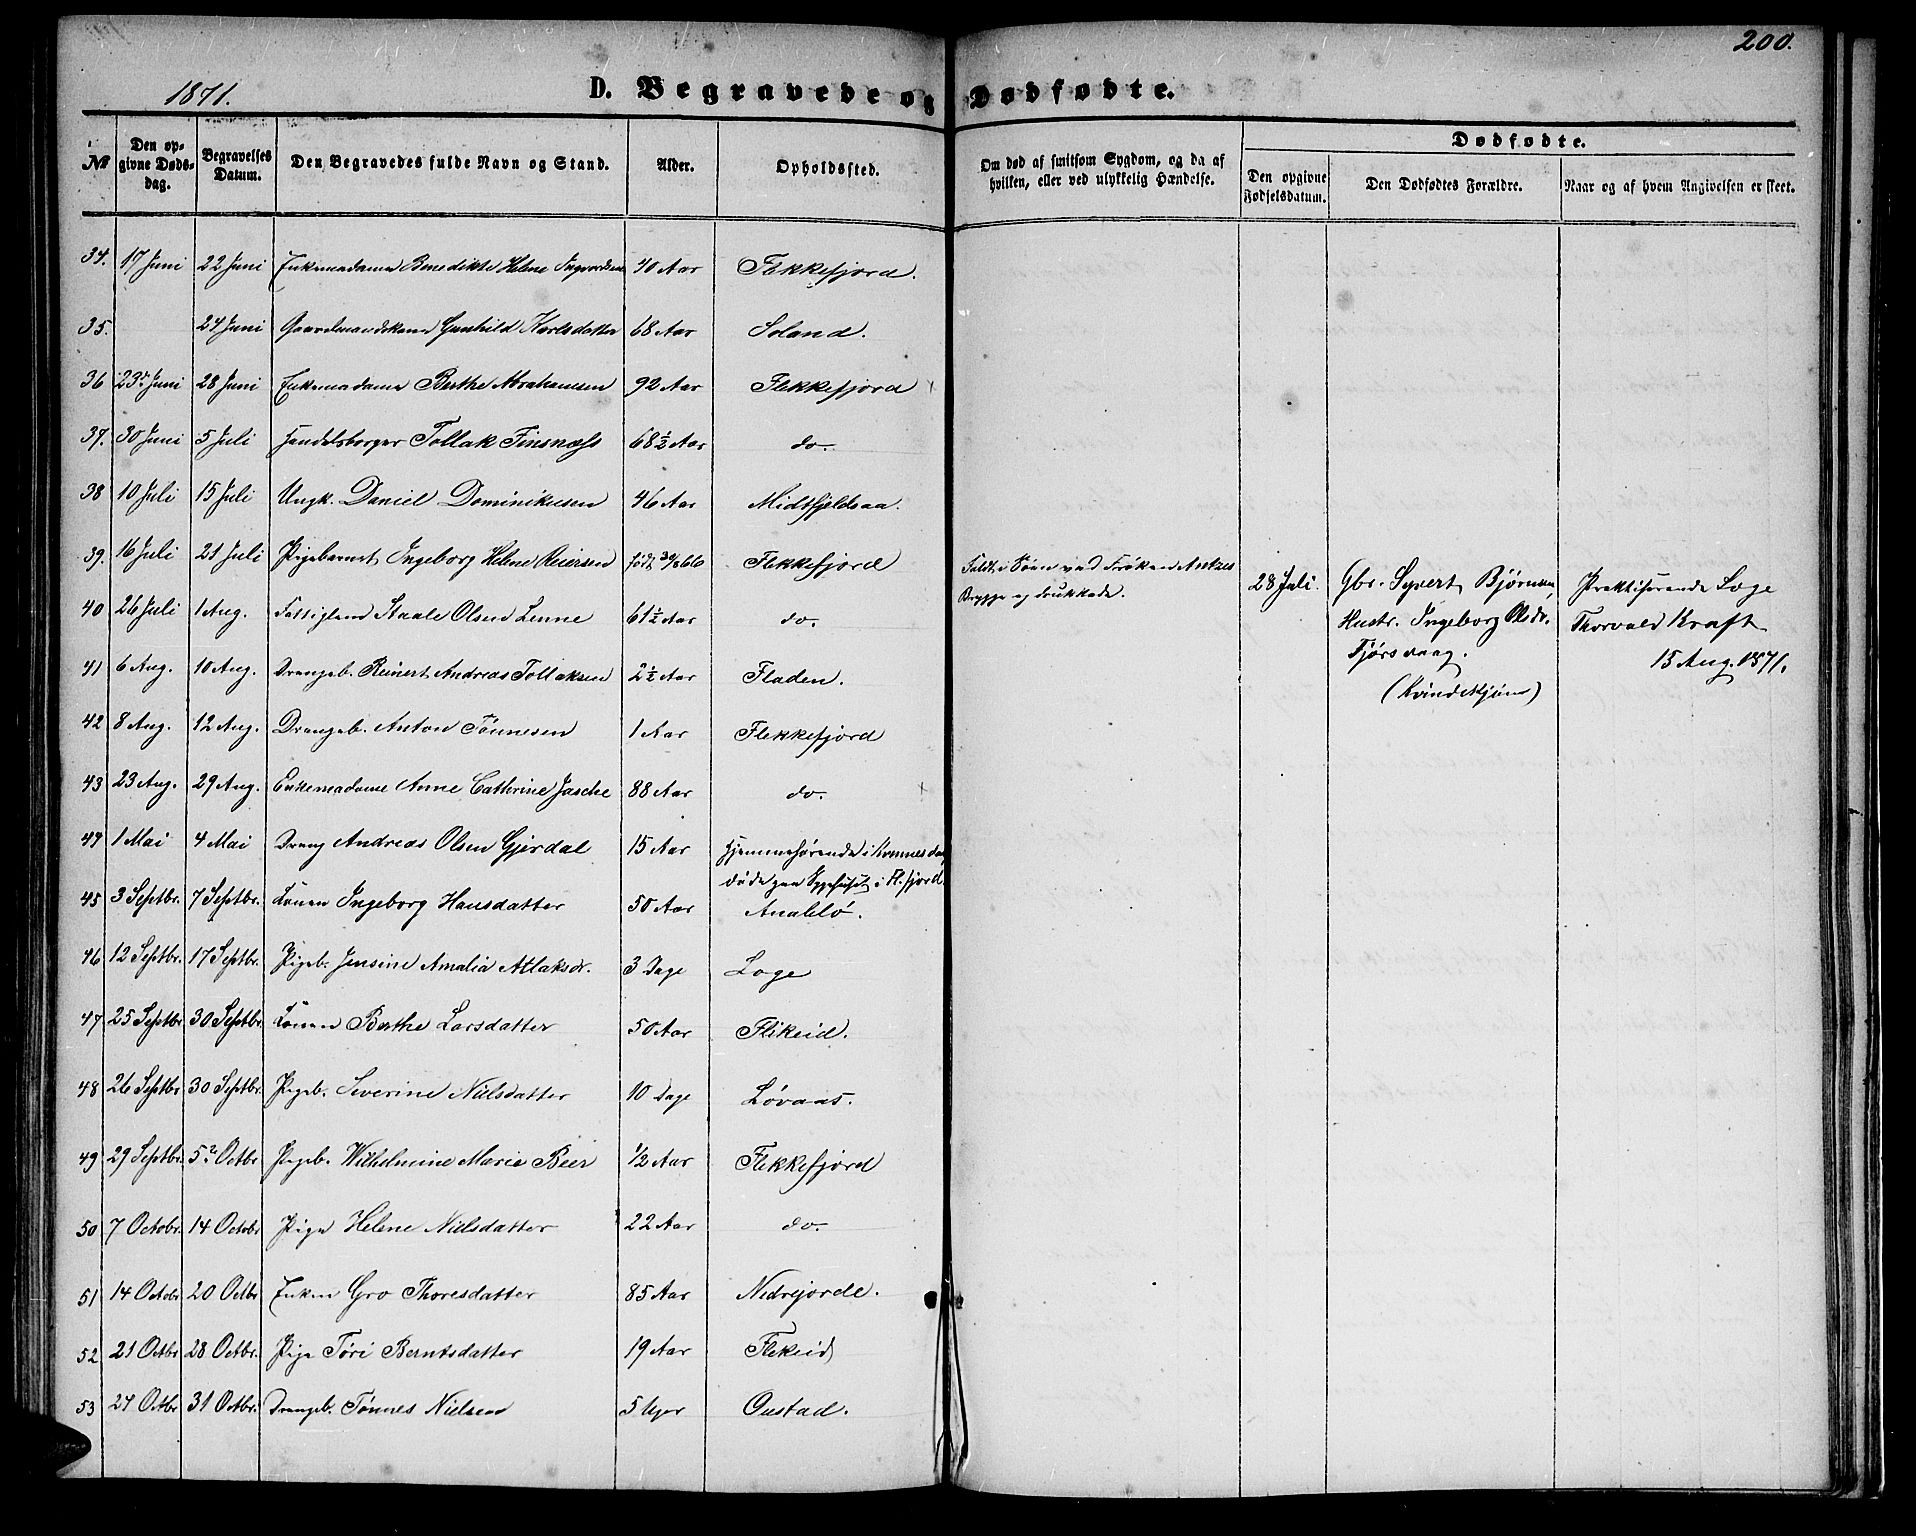 200.
1871.
D. Begravede og Dødfødte.
№
Den opgivne Dødsdag.
Begravelses Datum.
Den Begravedes fulde Navn og Stand.
Alder.
Opholdssted.
Om død af smitsom Sygdom, og da af hvilken, eller ved ulykkelig Hændelse.
Dødfødte.
Den opgivne Fødselsdatum.
Den Dødfødtes Forældre.
Naar og af hvem Angivelsen er skeet.
34. 17 Juni 22 Juni Enkemadame Benedikte Helene Ingvardsen 40 Aar Flekkefjord.
35. 24 Juni Gaardmandskone Gunhild Karlsdatter 68 Aar Soland.
36 23de Juni 28 Juni Enkemadame Berthe Abrahamsen 92 Aar Flekkefjord
37. 30 Juni 5 Juli Handelsborger Tollak Finsnæss 68½ Aar do.
38 10 Juli 15 Juli Ungk. Daniel Dominikusen 46 Aar Midtfjeldsaa.
39. 16 Juli 21 Juli Pigebarnet Ingeborg Helene Reiersen født 30/8 66 Flekkefjord Faldt i Søen ved Frøken Anskes
Brygge og druknede.
40 26 Juli 1 Aug. Fattiglem Staale Olsen Lenne 61½ Aar do.
28 Juli. Gbr. Syvert Bjørnsen, Praktiserende Læge
Hustr. Ingeborg Olsdr. Thorvald Kraft
Fjørsvaag. 15 Aug. 1871.
(Kvindekjøn)
41 6 Aug. 10 Aug. Drengeb. Reinert Andreas Tollaksen 2½ Aar Fladen.
42 8 Aug. 12 Aug. Drengeb. Anton Tønnesen 1 Aar Flekkefjord
43 23 Aug. 29 Aug. Enkemadame Anne Cathrine Jasche 88 Aar do.
44 1 Mai 4 Mai Dreng Andreas Olsen Gjerdal 15 Aar Hjemmehørende i
døde paa Sygehuset i Fl.fjord.
45 3 Septbr. 7 Septbr. Konen Ingeborg Hansdatter 50 Aar Anabelø.
46 12 Septbr. 17 Septbr. Pigeb. Jensine Amalia Atlaksdr. 3 Dage Loge
47 25 Septbr 30 Septbr. Konen Berthe Larsdatter 50 Aar Flikeid.
48 26 Septbr 30 Septbr. Pigeb. Severine Nielsdatter 10 Dage Løvaas.
49 29 Septbr. 5te Octbr Pigeb. Wilhelmine Marie Beer 1/2 Aar Flekkefjord
50 7 Octobr. 14 Octobr Pige Helene Nielsdatter 22 Aar do.
51 14 Octobr 20 Octbr Enken Gro Thoresdatter 85 Aar Nedrejorde.
52 21 Octbr 28 Octbr. Pige Tøri Berntsdatter 19 Aar Flikeid
53 24 Octbr 31 Octbr. Drengeb. Tønnes Nielsen 5 Uger Oustad.